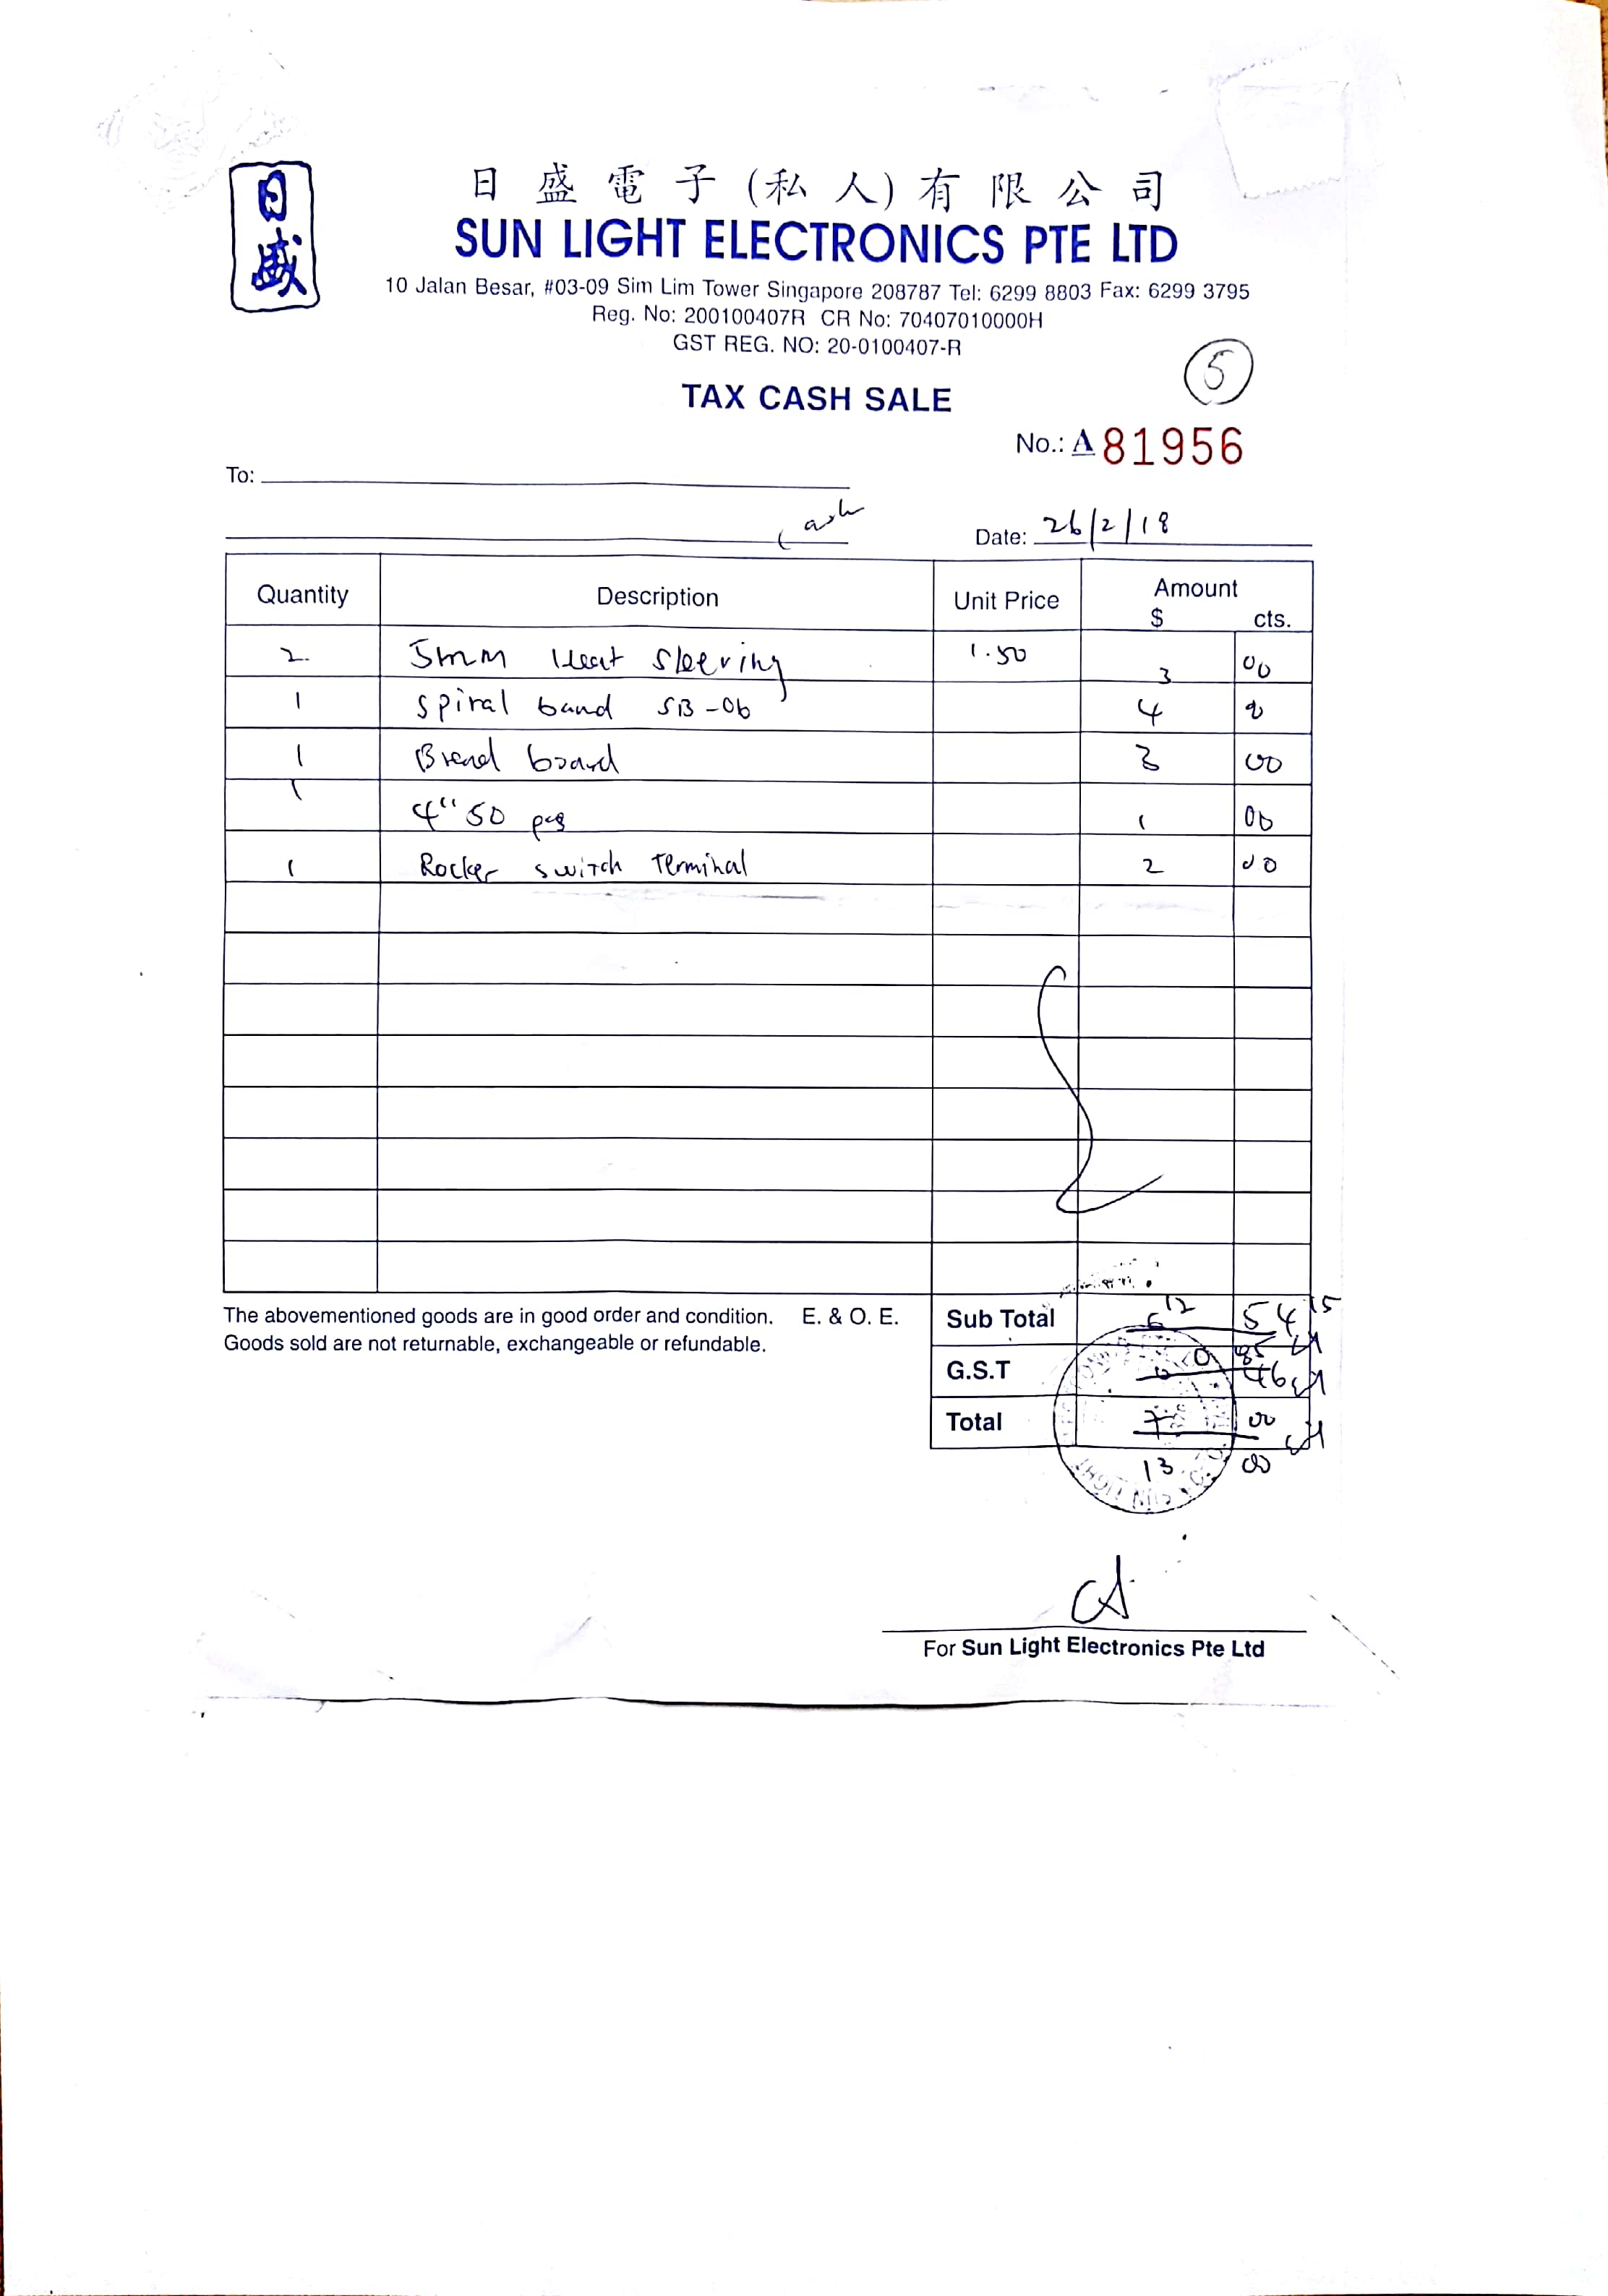 日盛
日盛電子(私人)有限公司
SUN LIGHT ELECTRONICS PTE LTD
10 Jalan Besar, #03-09 Sim Lim Tower Singapore 208787 Tel: 6299 8803 Fax: 6299 3795
Reg. No: 200100407R CR No: 70407010000H
GST REG. NO: 20-0100407-R
5
TAX CASH SALE
No.: A 81956
To:
Cash
Date: 26/2/18
Quantity Description Unit Price Amount
$ cts.
2 5mm Heat sleeving 1.50 3 00
1 Spiral band SB-06 4
1 Bread board 3 00
1 4" 50 pcs 1 00
1 Rocker switch Terminal 2 00
The abovementioned goods are in good order and condition. E. & O. E.
Goods sold are not returnable, exchangeable or refundable.
Sub Total 12 6 54 15
G.S.T 0 85 0 46
Total 7 00
13 00
For Sun Light Electronics Pte Ltd